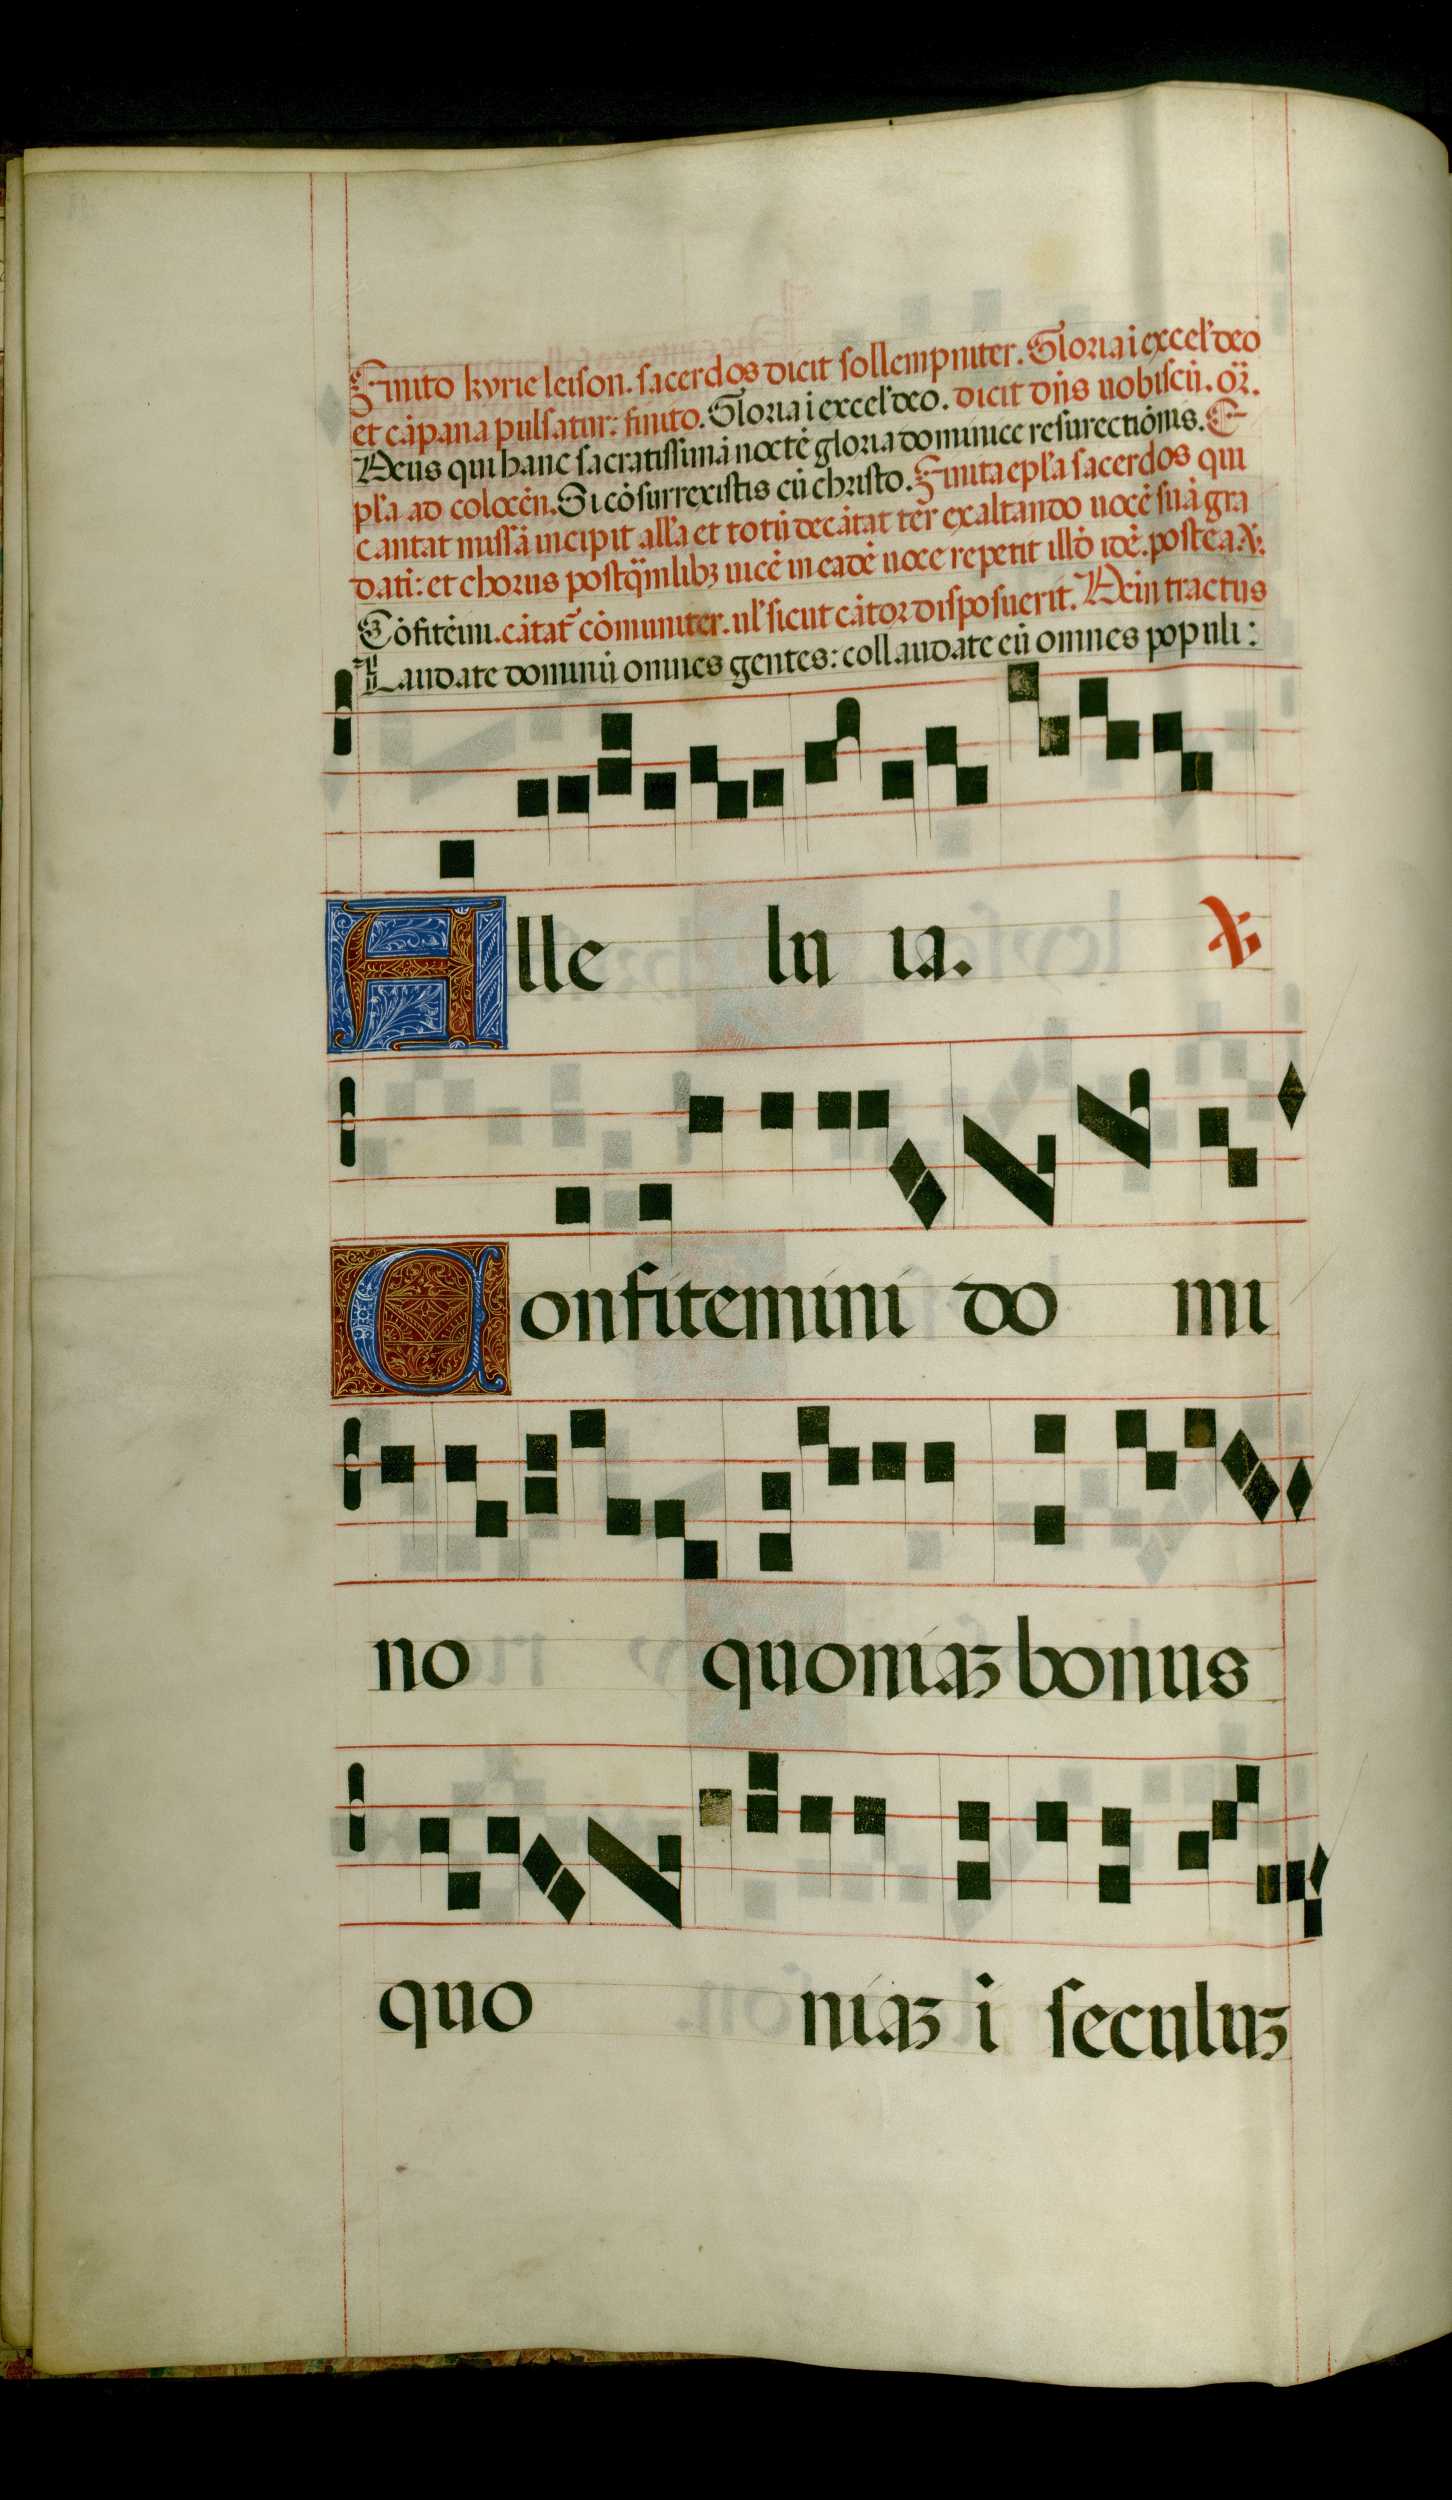 Finito kyrie leison. sacerdos dicit sollempniter. Gloria i excel' deo
et cāpana pulsatur: finito. Gloria i excel' deo. dicit dñs uobiscū. or̄.
Deus qui hanc sacratissimā noctē gloria dominice resurectiōnis. E
pl'a ad colocēn. Si cōsurrexistis cū christo. Finita epl'a sacerdos qui
cantat missā incipit all'a et totū decātat ter exaltando uocē suā gra
dati: et chorus postq̄mlibꝫ uicē in eadē uoce repetit illō idē. postea. ℣.
Cōfitēm. cātat̄ cōmuniter. ul' sicut cātor disposuerit. Dein tractus
Laudate dominū omnes gentes: collaudate eū omnes populi:
Alle lu ia. ℣
Confitemini do mi
no quoniaꝫ bonus
quo niaꝫ i seculuꝫ